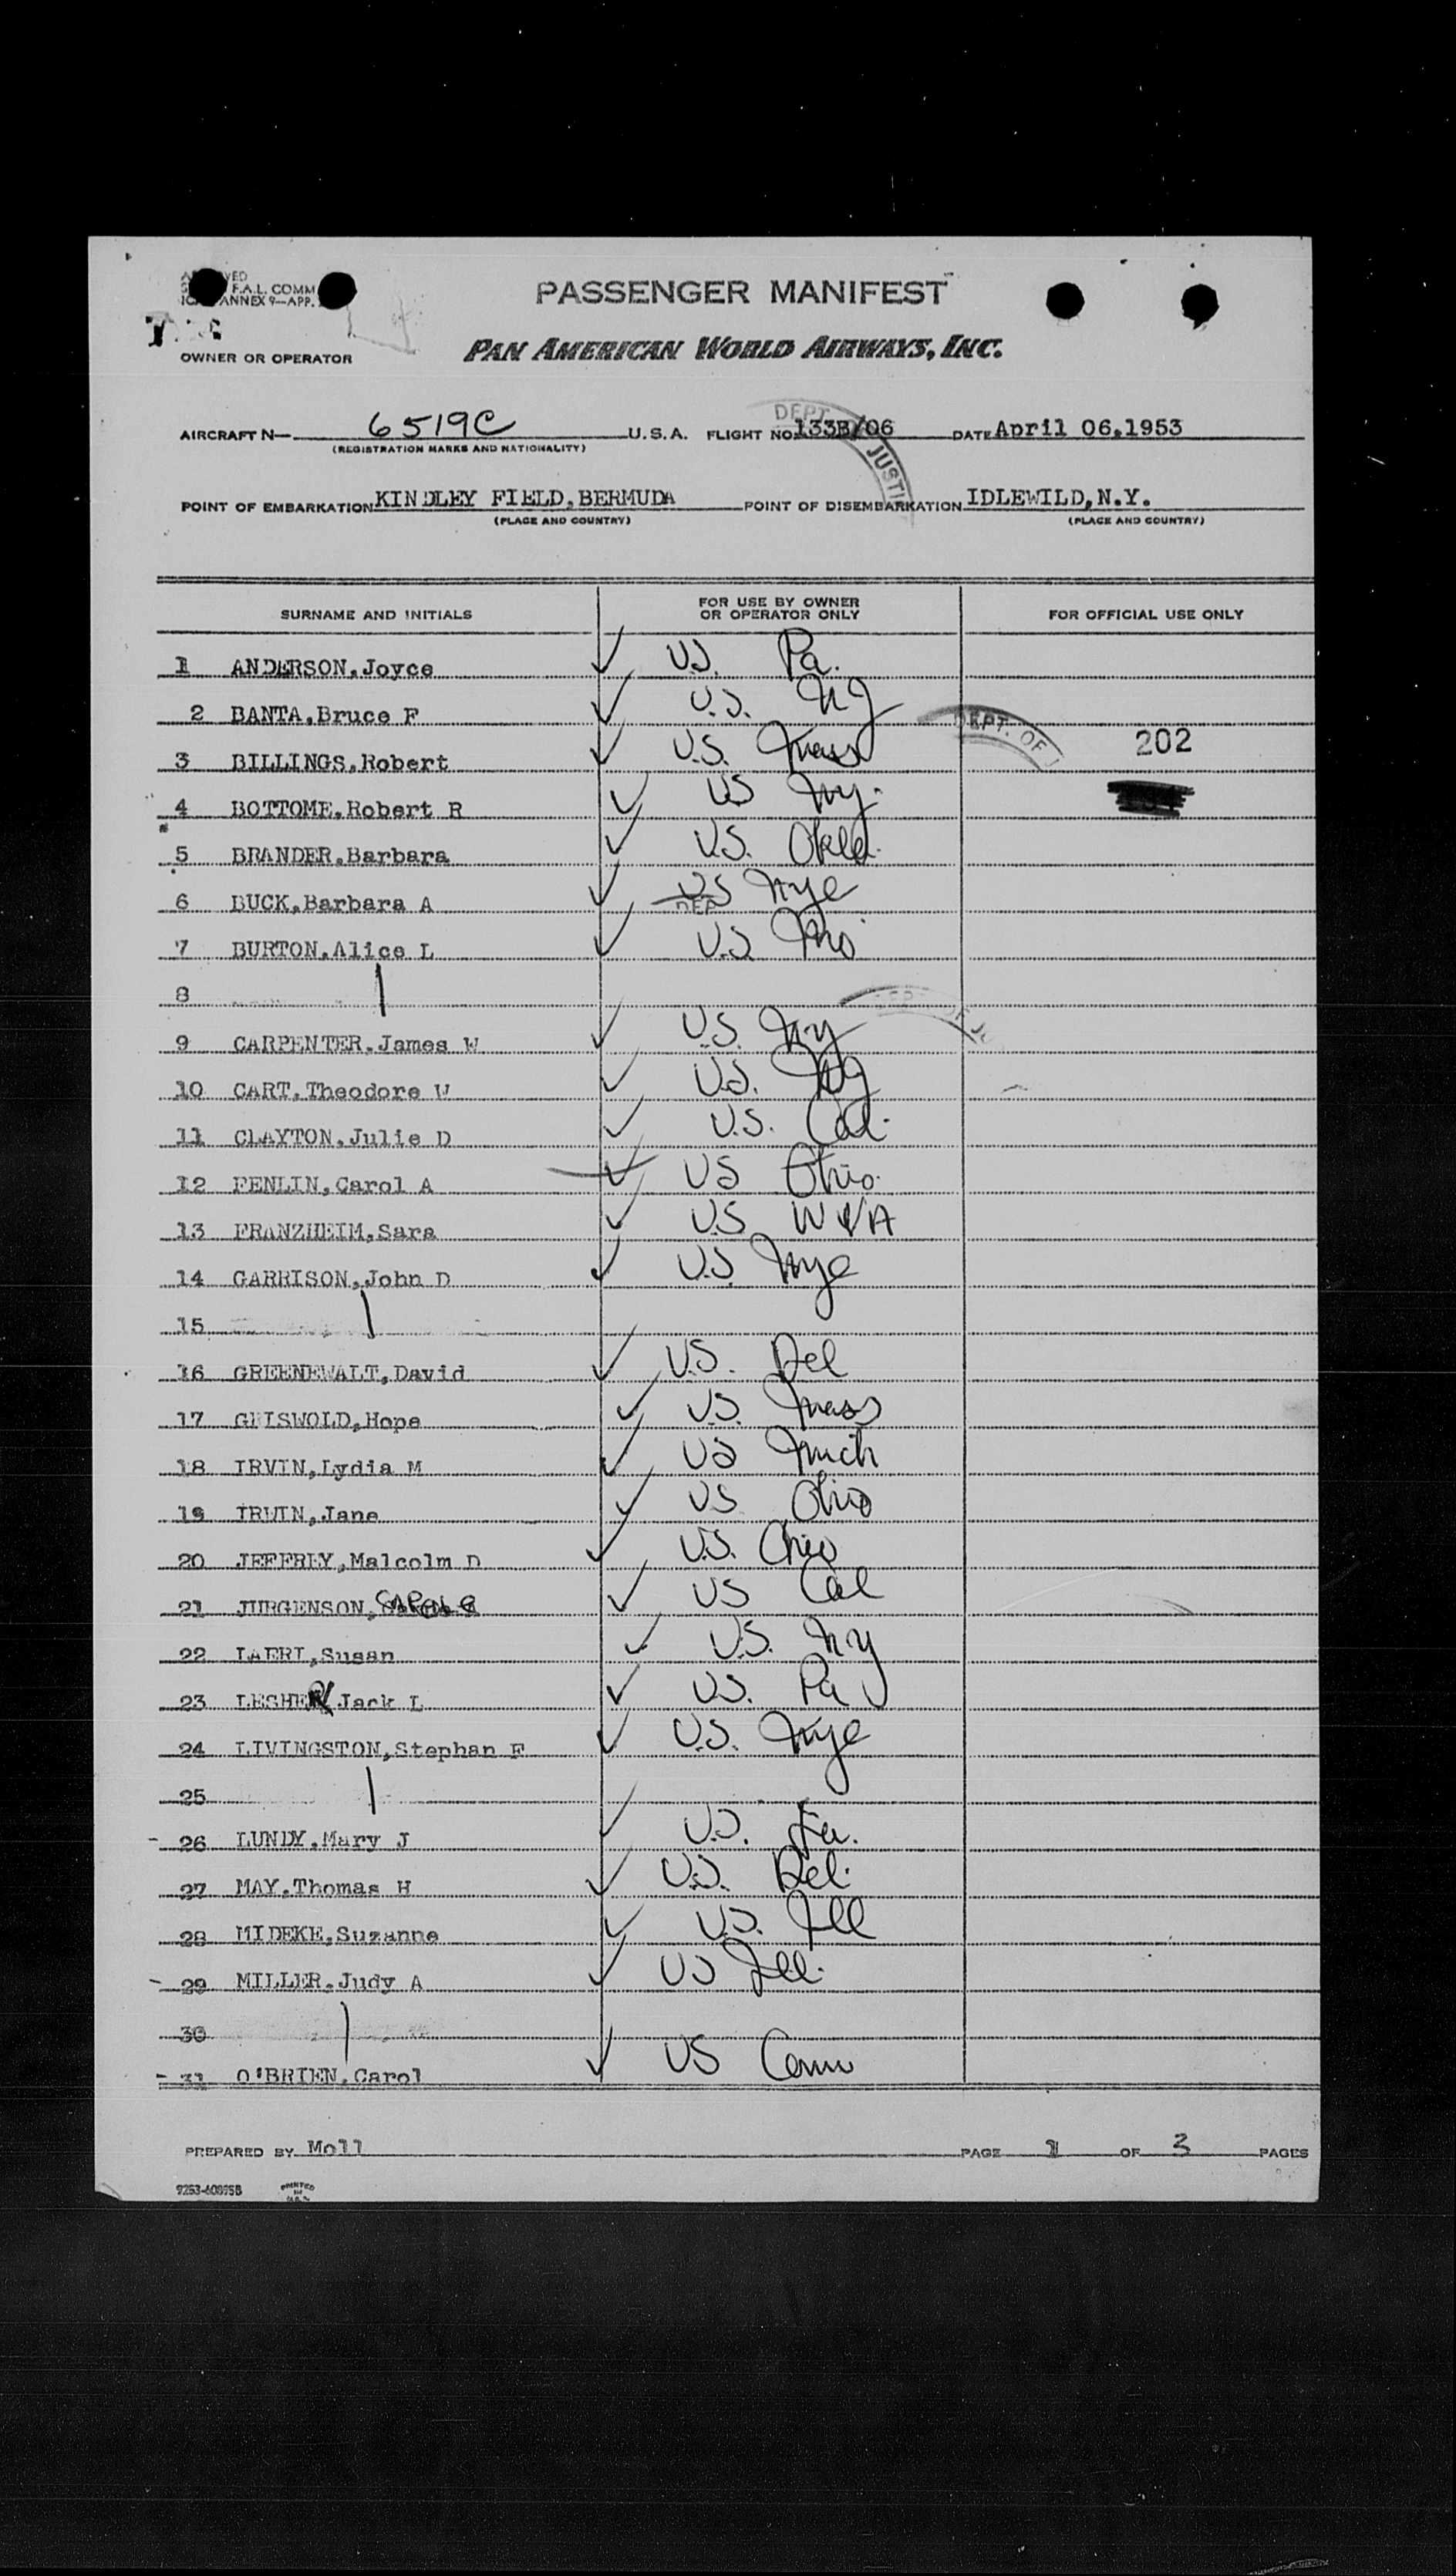 VED
F.A.L. COMM
ANNEX 9—APP.
PASSENGER MANIFEST
OWNER OR OPERATOR
PAN AMERICAN WORLD AIRWAYS, INC.
AIRCRAFT N— 6519C U.S.A. FLIGHT NO. 133B/06 DATE April 06,1953
(REGISTRATION MARKS AND NATIONALITY)
DEPT JUSTI
POINT OF EMBARKATION KINDLEY FIELD, BERMUDA POINT OF DISEMBARKATION IDLEWILD, N.Y.
(PLACE AND COUNTRY) (PLACE AND COUNTRY)
SURNAME AND INITIALS FOR USE BY OWNER OR OPERATOR ONLY FOR OFFICIAL USE ONLY
1 ANDERSON, Joyce ✓ U.S. Pa.
2 BANTA, Bruce F ✓ U.S. NJ
DEPT. OF
3 BILLINGS, Robert ✓ U.S. Mass 202
4 BOTTOME, Robert R ✓ US NY.
5 BRANDER, Barbara ✓ U.S. Okla.
6 BUCK, Barbara A ✓ US NYC
DEP
7 BURTON, Alice L ✓ U.S. Mo
8
9 CARPENTER, James W ✓ U.S. NY
10 CART, Theodore W ✓ U.S. NJ
11 CLAYTON, Julie D ✓ U.S. Cal.
12 FENLIN, Carol A ✓ US Ohio.
13 FRANZHEIM, Sara ✓ U.S W VA
14 GARRISON, John D ✓ U.S. NYC
15
16 GREENEWALT, David ✓ U.S. Del
17 GRISWOLD, Hope ✓ U.S. Mass
18 IRVIN, Lydia M ✓ US Mich
19 IRWIN, Jane ✓ U.S. Ohio
20 JEFFRLY, Malcolm D ✓ U.S. Ohio
21 JURGENSON, CAROL C ✓ US Cal
22 LAERI, Susan ✓ U.S. NY
23 LESHER, Jack L ✓ U.S. Pa
24 LIVINGSTON, Stephan F ✓ U.S. NYC
25
26 LUNDY, Mary J ✓ U.S.
27 MAY, Thomas H ✓ U.S. Del.
28 MIDEKE, Suzanne ✓ U.S. Ill
29 MILLER, Judy A ✓ US Ill.
30
31 O'BRIEN, Carol ✓ US Conn
PREPARED BY Moll PAGE 1 OF 3 PAGES
9253-60895B PRINTED IN U.S.A.